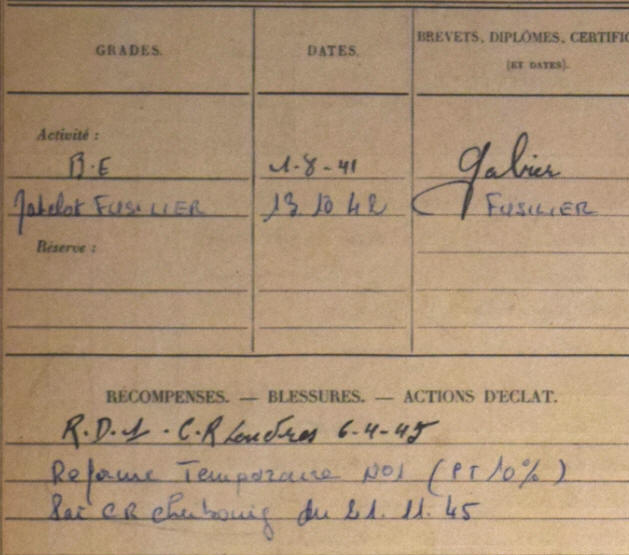 GRADES. DATES. BREVETS, DIPLÔMES, CERTIFIC
(ET DATES).
Activité :
B.E 1-8-41 Gabier
Matelot FUSILIER 13 10 42 FUSILIER
Réserve :
RÉCOMPENSES. — BLESSURES. — ACTIONS D'ÉCLAT.
R.D.1. C.R Londres 6-4-45
Reforme Temporaire NO1 (PT 10%)
CR Cherbourg du 21. 11. 45